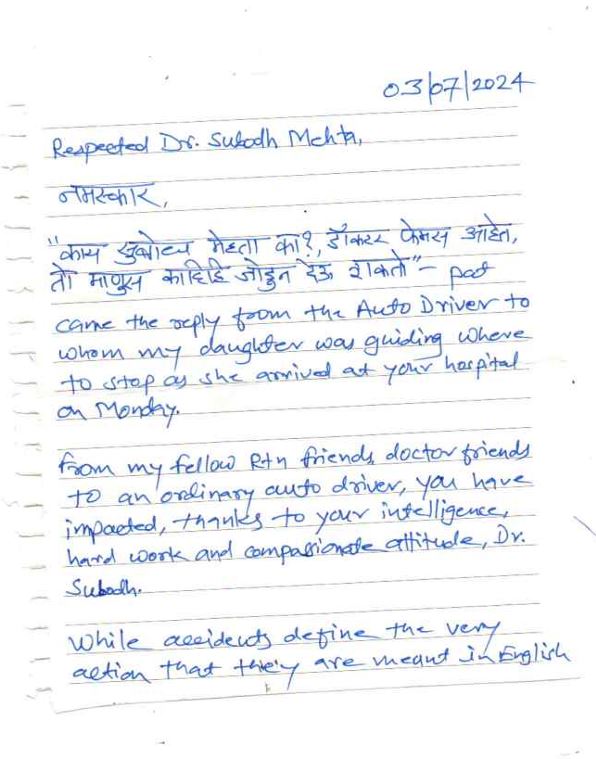 03/07/2024
Respected Dr. Subodh Mehta,
नमस्कार,
"काय सुबोध मेहता का?, डॉक्टर फेमस आहेत,
तो माणूस काहिहि जोडुन देऊ शकतो" - pat
came the reply from the Auto Driver to
whom my daughter was guiding where
to stop as she arrived at your hospital
on Monday.
from my fellow Rtn friends, doctor friends
to an ordinary auto driver, you have
impacted, thanks to your intelligence,
hard work and compassionate attitude, Dr.
Subodh.
While accidents define the very
action that they are meant in English